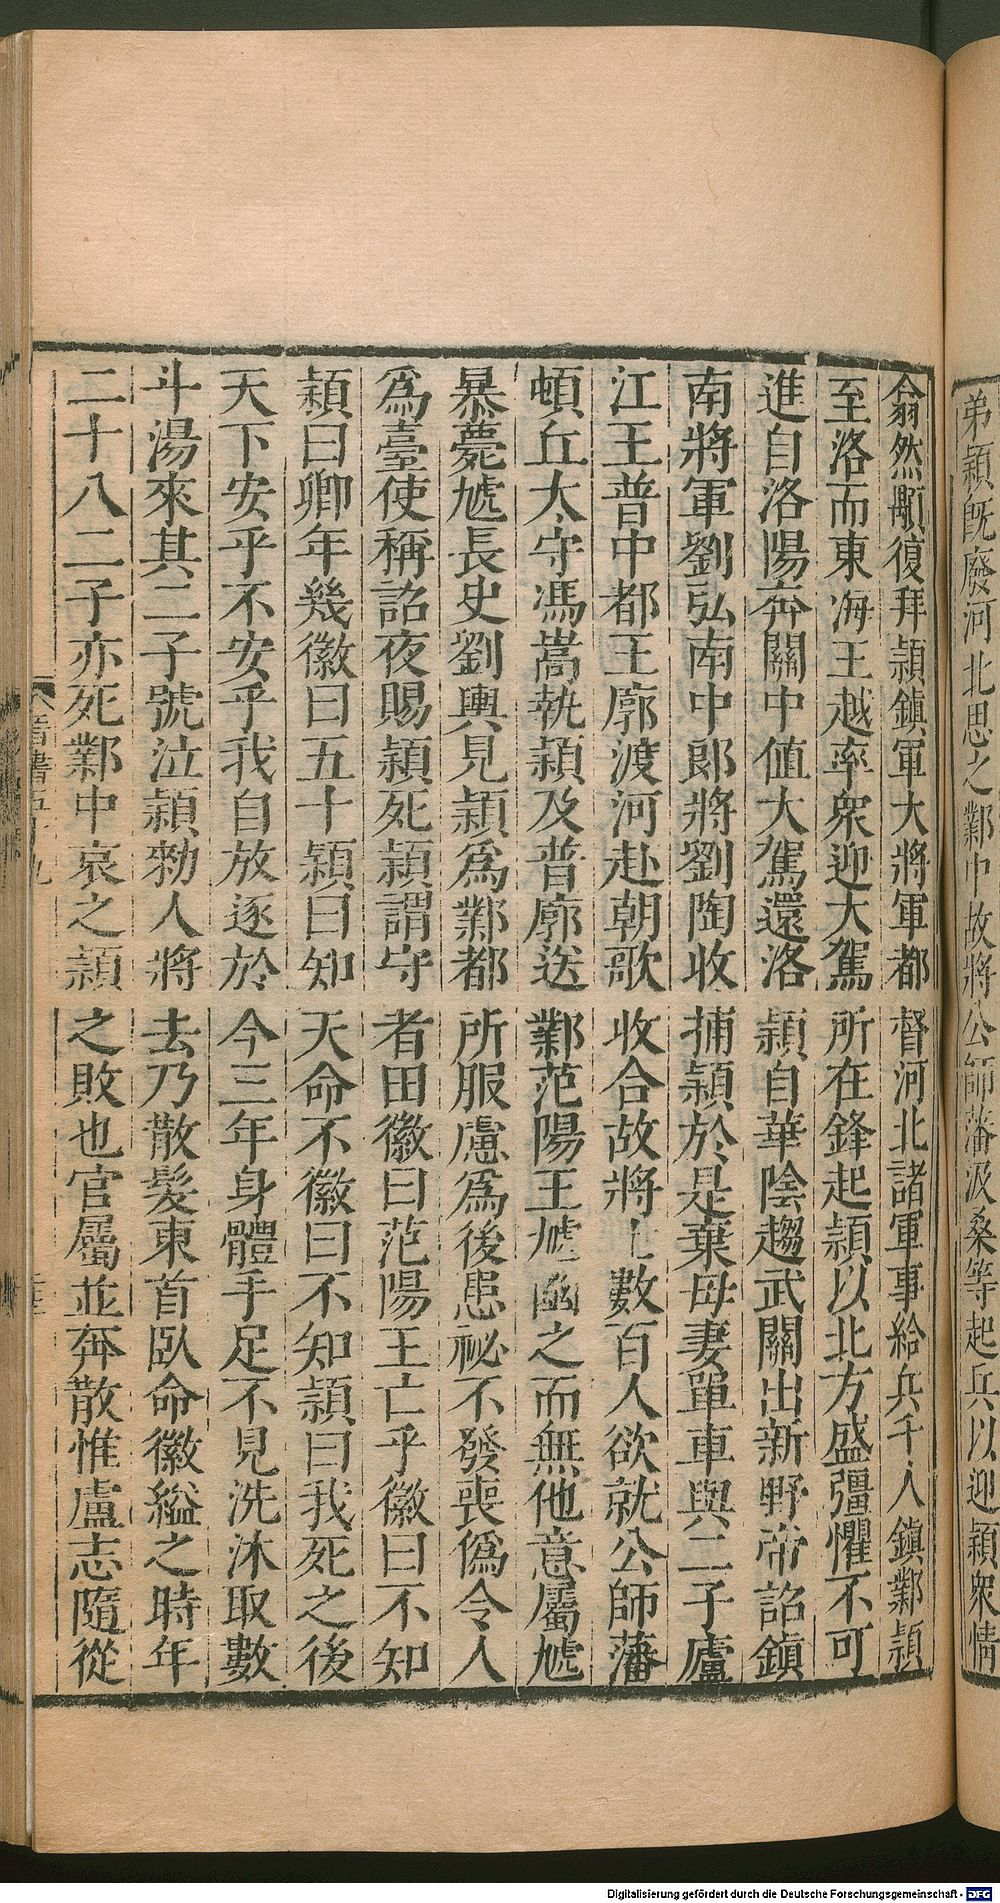 弟穎旣廢河北思之鄴中故將公師藩汲桑等起兵以迎穎衆情
翕然顒復拜穎鎮軍大將軍都督河北諸軍事給兵千人鎮鄴穎
至洛而東海王越率衆迎大駕所在鋒起穎以北方盛彊懼不可
進自洛陽奔關中值大駕還洛穎自華陰趨武關出新野帝詔鎮
南將軍劉弘南中郎將劉陶收捕穎於是棄母妻單車與二子廬
江王普中都王廓渡河赴朝歌收合故將士數百人欲就公師藩
頓丘太守馮嵩執穎及普廓送鄴范陽王虓幽之而無他意屬虓
暴薨虓長史劉輿見穎爲鄴都所服慮爲後患祕不發喪僞令人
爲臺使稱詔夜賜穎死穎謂守者田徽曰范陽王亡乎徽曰不知
穎曰卿年幾徽曰五十穎曰知天命不徽曰不知穎曰我死之後
天下安乎不安乎我自放逐於今三年身體手足不見洗沐取數
斗湯來其二子號泣穎勑人將去乃散髮東首臥命徽縊之時年
二十八二子亦死鄴中哀之穎之敗也官屬並奔散惟盧志隨從
晉書五十九
Digitalisierung gefördert durch die Deutsche Forschungsgemeinschaft - DFG